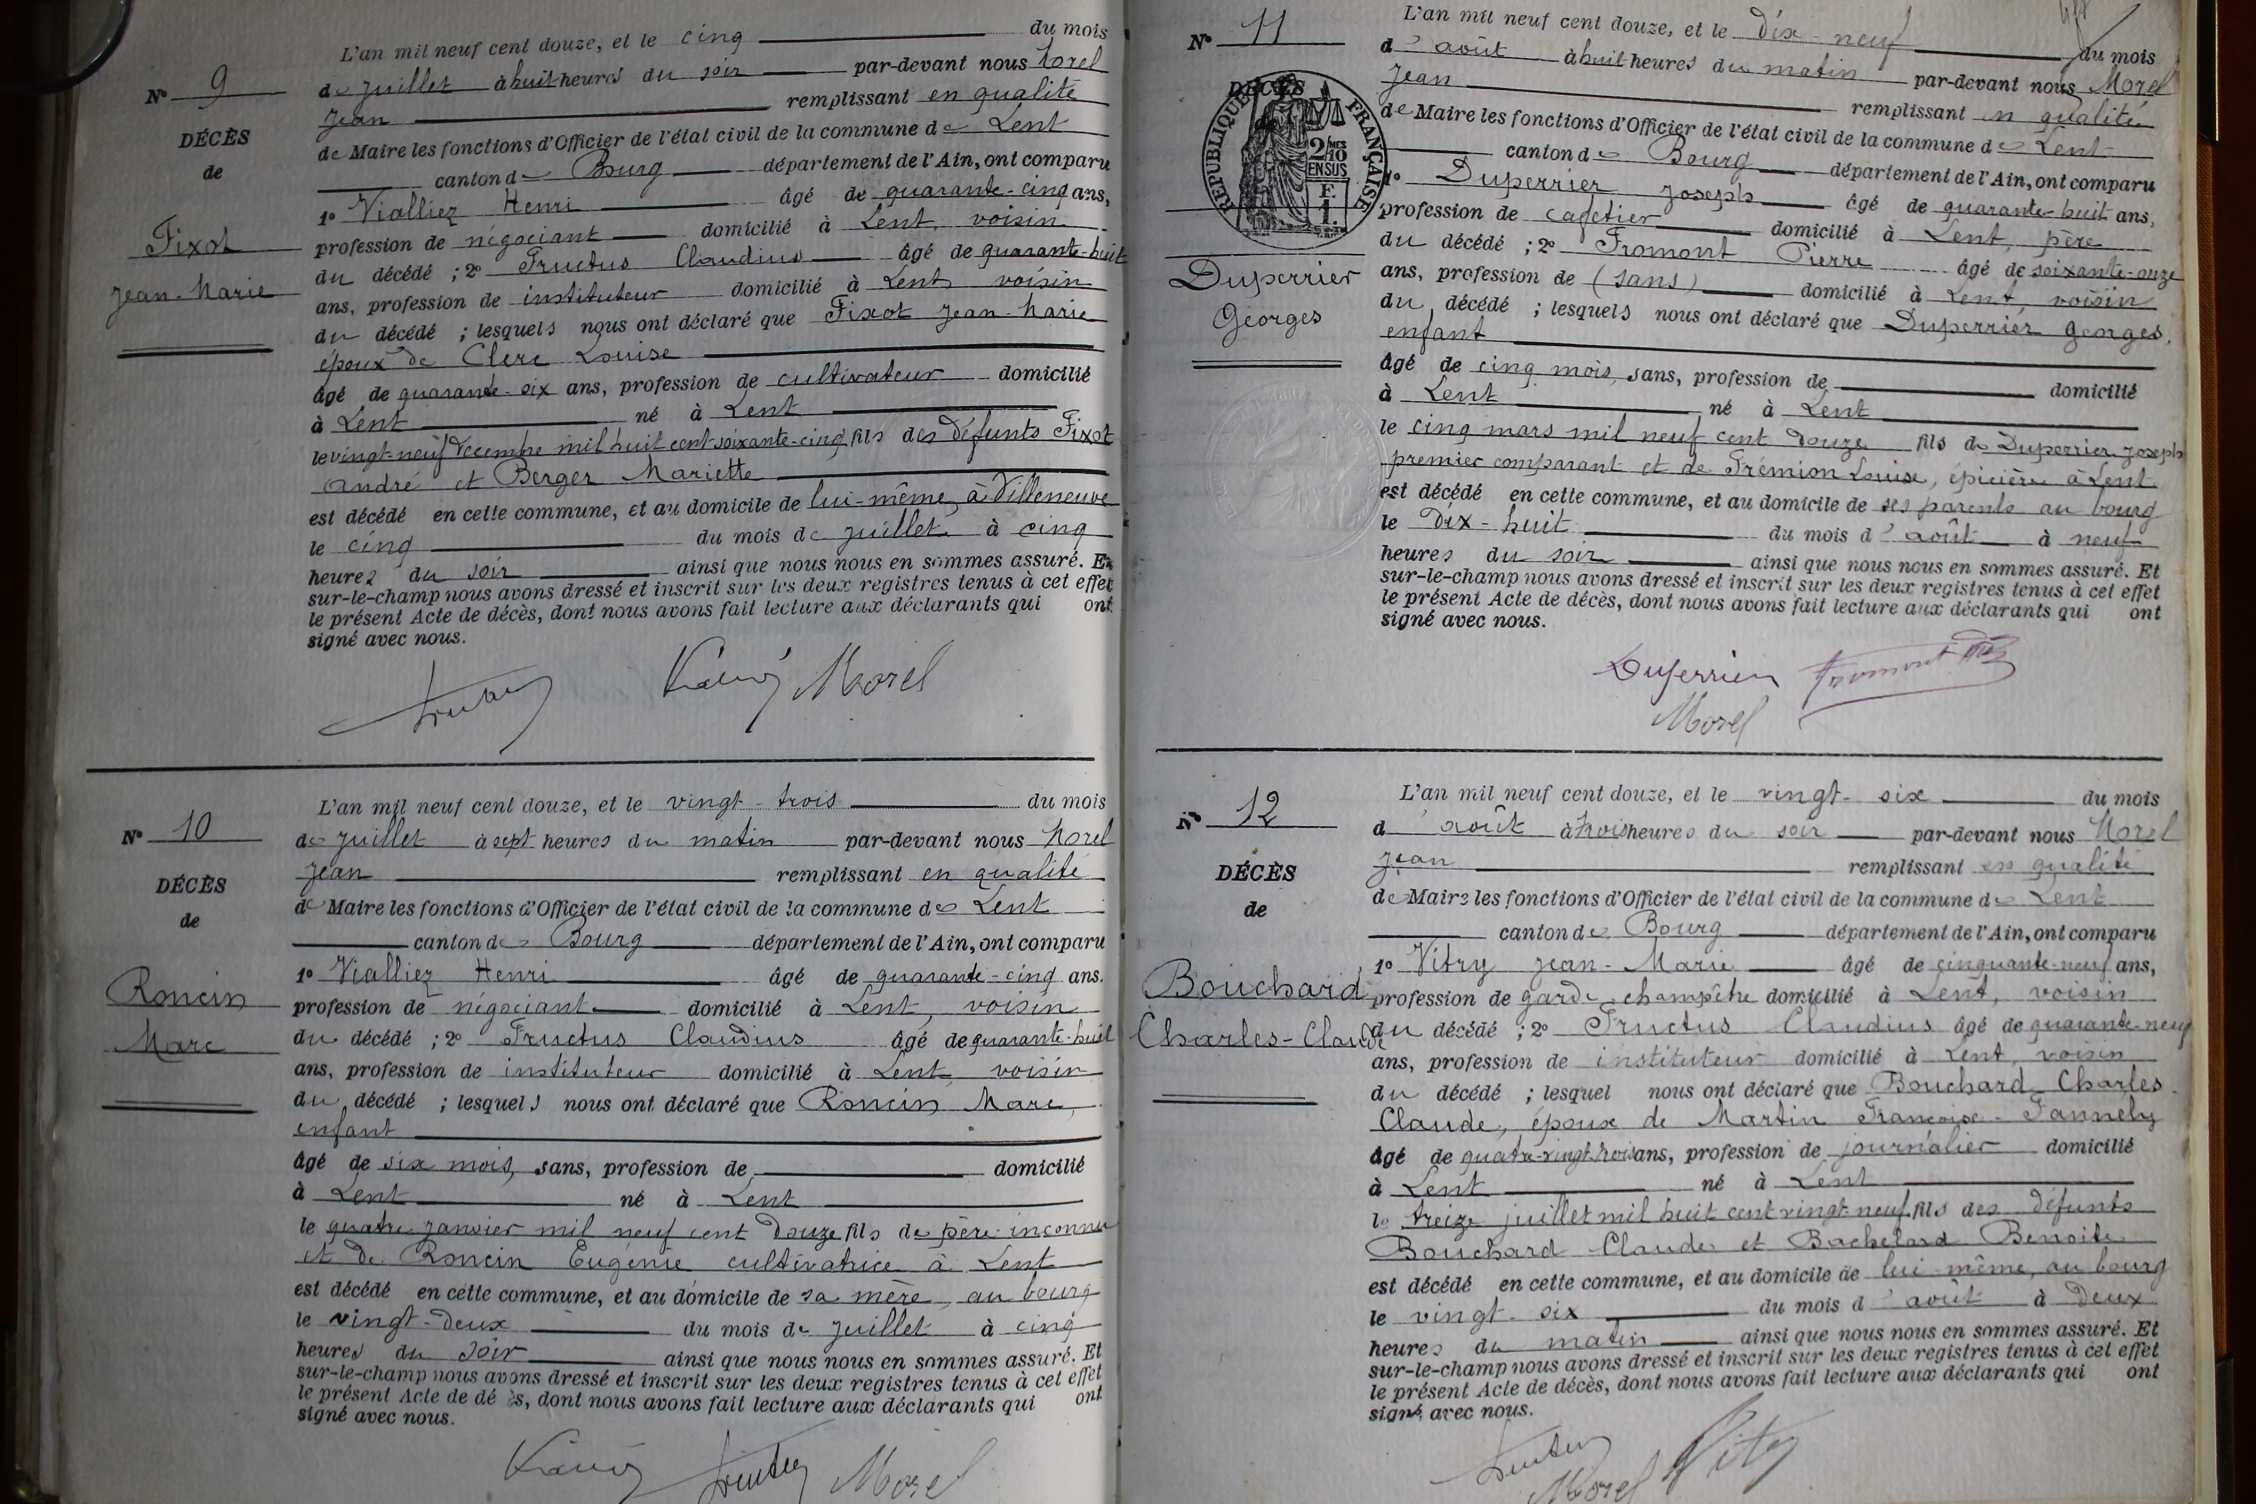 L'an mil neuf cent douze, et le cinq du mois
N° 9
de juillet à huit heures du soir par-devant nous Morel
Jean remplissant en qualité
DÉCÈS
de Maire les fonctions d'Officier de l'état civil de la commune de Lent
de
canton de Bourg département de l'Ain, ont comparu
1° Vialliez Henri âgé de quarante-cinq ans,
Fixot
profession de négociant domicilié à Lent, voisin
du décédé ; 2° Fructus Claudius âgé de quarante-huit
Jean-Marie
ans, profession de instituteur domicilié à Lent, voisin
du décédé ; lesquels nous ont déclaré que Fixot Jean-Marie
époux de Clerc Louise
âgé de quarante-six ans, profession de cultivateur domicilié
à Lent né à Lent
le vingt-neuf décembre mil huit cent soixante-cinq fils des défunts Fixot
André et Berger Mariette
est décédé en cette commune, et au domicile de lui-même, à Villeneuve
le cinq du mois de juillet à cinq
heures du soir ainsi que nous nous en sommes assuré. Et
sur-le-champ nous avons dressé et inscrit sur les deux registres tenus à cet effet
le présent Acte de décès, dont nous avons fait lecture aux déclarants qui ont
signé avec nous.
Morel
L'an mil neuf cent douze, et le vingt-trois du mois
N° 10
de juillet à sept heures du matin par-devant nous Morel
Jean remplissant en qualité
DÉCÈS
de Maire les fonctions d'Officier de l'état civil de la commune de Lent
de
canton de Bourg département de l'Ain, ont comparu
1° Vialliez Henri âgé de quarante-cinq ans.
Roncin
profession de négociant domicilié à Lent, voisin
Marc
du décédé ; 2° Fructus Claudius âgé de quarante-huit
ans, profession de instituteur domicilié à Lent, voisin
du décédé ; lesquels nous ont déclaré que Roncin Marc,
enfant
âgé de six mois, sans, profession de domicilié
à Lent né à Lent
le quatre janvier mil neuf cent douze fils de père inconnu
et de Roncin Eugénie cultivatrice à Lent
est décédé en cette commune, et au domicile de sa mère, au bourg
le vingt-deux du mois de juillet à cinq
heures du soir ainsi que nous nous en sommes assuré. Et
sur-le-champ nous avons dressé et inscrit sur les deux registres tenus à cet effet
le présent Acte de décès, dont nous avons fait lecture aux déclarants qui ont
signé avec nous.
Morel
L'an mil neuf cent douze, et le dix-neuf du mois
N° 11
d'août à huit heures du matin par-devant nous Morel
Jean remplissant en qualité
DÉCÈS
RÉPUBLIQUE FRANÇAISE
2/10 MES EN SUS
F. 1.
de Maire les fonctions d'Officier de l'état civil de la commune de Lent
canton de Bourg département de l'Ain, ont comparu
1° Duperrier Joseph âgé de quarante-huit ans,
profession de cafetier domicilié à Lent, père
du décédé ; 2° Fromont Pierre âgé de soixante-onze
Duperrier
ans, profession de (sans) domicilié à Lent, voisin
Georges
du décédé ; lesquels nous ont déclaré que Duperrier Georges,
enfant
âgé de cinq mois, sans, profession de domicilié
à Lent né à Lent
le cinq mars mil neuf cent douze fils de Duperrier Joseph
premier comparant et de Frémion Louise, épicière à Lent
est décédé en cette commune, et au domicile de ses parents au bourg
le dix-huit du mois d'août à neuf
heures du soir ainsi que nous nous en sommes assuré. Et
sur-le-champ nous avons dressé et inscrit sur les deux registres tenus à cet effet
le présent Acte de décès, dont nous avons fait lecture aux déclarants qui ont
signé avec nous.
Duperrier Fromont
Morel
L'an mil neuf cent douze, et le vingt-six du mois
N° 12
d'août à trois heures du soir par-devant nous Morel
Jean remplissant en qualité
DÉCÈS
de Maire les fonctions d'Officier de l'état civil de la commune de Lent
de
canton de Bourg département de l'Ain, ont comparu
1° Vitry Jean-Marie âgé de cinquante-neuf ans,
Bouchard
profession de garde champêtre domicilié à Lent, voisin
Charles-Claude
du décédé ; 2° Fructus Claudius âgé de quarante-neuf
ans, profession de instituteur domicilié à Lent, voisin
du décédé ; lesquel nous ont déclaré que Bouchard Charles
Claude, époux de Martin Françoise-
âgé de quatre-vingt trois ans, profession de journalier domicilié
à Lent né à Lent
le treize juillet mil huit cent vingt neuf fils des défunts
Bouchard Claude et Bachelard Benoite
est décédé en cette commune, et au domicile de lui-même, au bourg
le vingt-six du mois d'août à deux
heures du matin ainsi que nous nous en sommes assuré. Et
sur-le-champ nous avons dressé et inscrit sur les deux registres tenus à cet effet
le présent Acte de décès, dont nous avons fait lecture aux déclarants qui ont
signé avec nous.
Morel Vitry